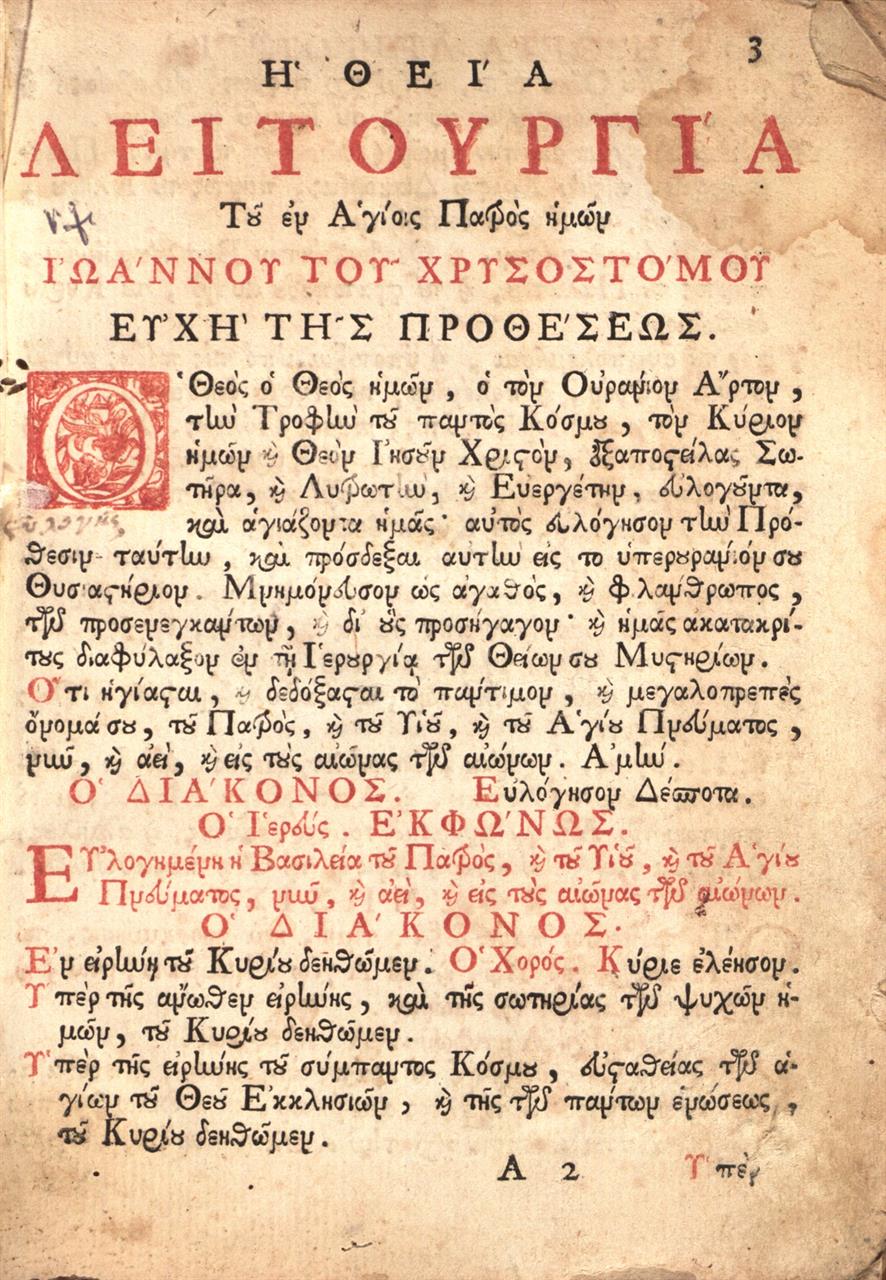 3
Ἡ ΘΕΊΑ
ΛΕΙΤΟΥΡΓΊΑ
Τοῦ ἐν Ἁγίοις Πατρὸς ἡμῶν
ἸΩΆΝΝΟΥ ΤΟΥ͂ ΧΡΥΣΟΣΤΌΜΟΥ
ΕΥ̓ΧῊ ΤΗ͂Σ ΠΡΟΘΈΣΕΩΣ.
Ὁ Θεὸς ὁ Θεὸς ἡμῶν, ὁ τὸν Οὐράνιον Ἄρτον,
τὴν Τροφὴν τοῦ παντὸς Κόσμου, τὸν Κύριον
ἡμῶν καὶ Θεὸν Ἰησοῦν Χριστὸν, ἐξαποστείλας Σω-
τῆρα, καὶ Λυτρωτὴν, καὶ Ευεργέτην, ευλογοῦντα,
καὶ ἁγιάζοντα ἡμᾶς· αὐτὸς ευλόγησον τὴν Πρό-
ευλογής
θεσιν ταύτην, καὶ πρόσδεξαι αυτὴν εἰς το ὑπερουράνιόν σου
Θυσιαστήριον. Μνημόνευσον ὡς ἀγαθὸς, καὶ φιλάνθρωπος,
τῶν προσενεγκάντων, καὶ δι' οὓς προσήγαγον· καὶ ἡμᾶς ακατακρί-
τους διαφύλαξον ἐν τῇ Ἱερουργίᾳ τῶν Θείων σου Μυστηρίων.
Ὅτι ἡγίασται, καὶ δεδόξασται τὸ πάντιμον, καὶ μεγαλοπρεπὲς
ὄνομά σου, τοῦ Πατρὸς, καὶ τοῦ Υἱοῦ, καὶ τοῦ Ἁγίου Πνεύματος,
νῦν, καὶ ἀεὶ, καὶ εἰς τοὺς αἰῶνας τῶν αἰώνων. Ἀμήν.
Ὁ ΔΙΆΚΟΝΟΣ. Ευλόγησον Δέσποτα.
Ὁ Ἱερεύς. ἘΚΦΏΝΩΣ.
Εὐλογημένη ἡ Βασιλεία τοῦ Πατρὸς, καὶ τοῦ Υἱοῦ, καὶ τοῦ Ἁγίου
Πνεύματος, νῦν, καὶ ἀεὶ, καὶ εἰς τοὺς αἰῶνας τῶν αἰώνων.
Ὁ ΔΙΆΚΟΝΟΣ.
Ἐν εἰρήνῃ τοῦ Κυρίου δεηθῶμεν. Ὁ Χορός. Κύριε ἐλέησον.
Ὑπὲρ τῆς ἄνωθεν εἰρήνης, καὶ τῆς σωτηρίας τῶν ψυχῶν ἡ-
μῶν, τοῦ Κυρίου δεηθῶμεν.
Ὑπὲρ τῆς εἰρήνης τοῦ σύμπαντος Κόσμου, εὐσταθείας τῶν ἁ-
γίων τοῦ Θεοῦ Ἐκκλησιῶν, καὶ τῆς τῶν πάντων ἑνώσεως,
τοῦ Κυρίου δεηθῶμεν.
Α 2 Ὑπὲρ